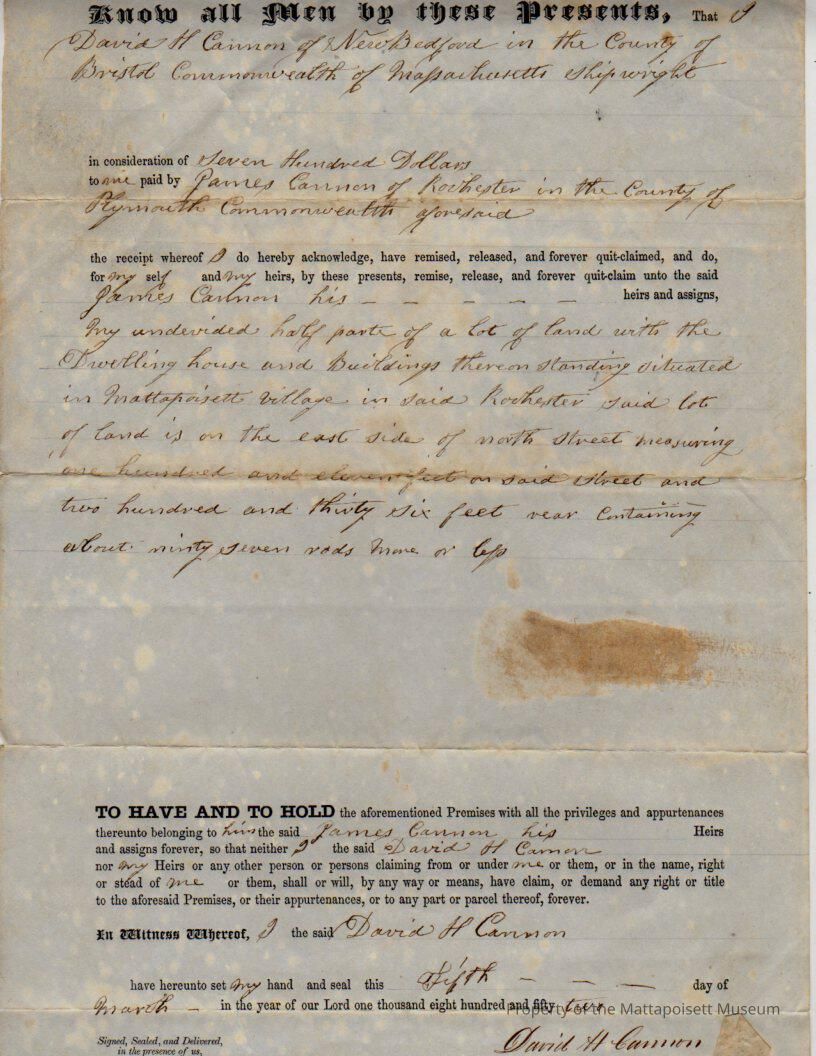 Know all Men by these Presents, That I
David H Cannon of New Bedford in the County of
Bristol Commonwealth of Massachusetts shipwright
in consideration of Seven Hundred Dollars
to me paid by James Cannon of Rochester in the County of
Plymouth Commonwealth aforesaid
the receipt whereof I do hereby acknowledge, have remised, released, and forever quit-claimed, and do,
for my self and my heirs, by these presents, remise, release, and forever quit-claim unto the said
James Cannon his – – – – – – heirs and assigns,
My undevided half parte of a lot of land with the
Dwelling house and Buildings thereon standing situated
in Mattapoisett Village in said Rochester said lot
of land is on the east side of north street measuring
one hundred and eleven feet on said street and
two hundred and thirty six feet rear containing
about ninty seven rods more or less
TO HAVE AND TO HOLD the aforementioned Premises with all the privileges and appurtenances
thereunto belonging to him the said James Cannon his Heirs
and assigns forever, so that neither I the said David H Cannon
nor my Heirs or any other person or persons claiming from or under me or them, or in the name, right
or stead of me or them, shall or will, by any way or means, have claim, or demand any right or title
to the aforesaid Premises, or their appurtenances, or to any part or parcel thereof, forever.
In Witness Whereof, I the said David H Cannon
have hereunto set my hand and seal this Fifth – – – day of
March – in the year of our Lord one thousand eight hundred and fifty two
Property of the Mattapoisett Museum
Signed, Sealed, and Delivered, David H Cannon
in the presence of us,